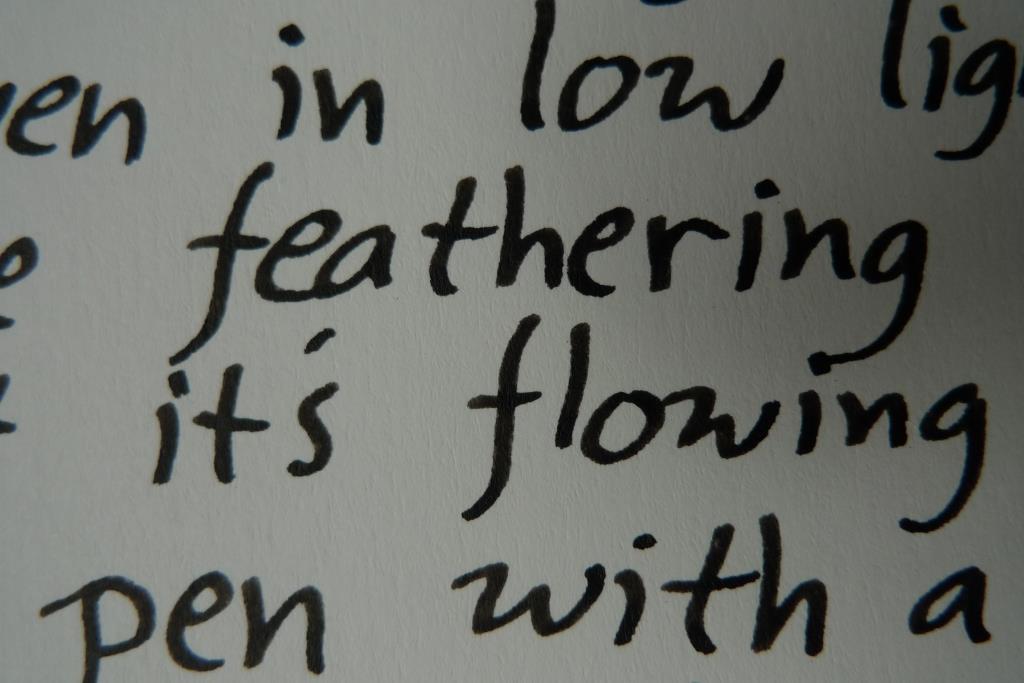 in low
feathering
it's flowing
pen with a